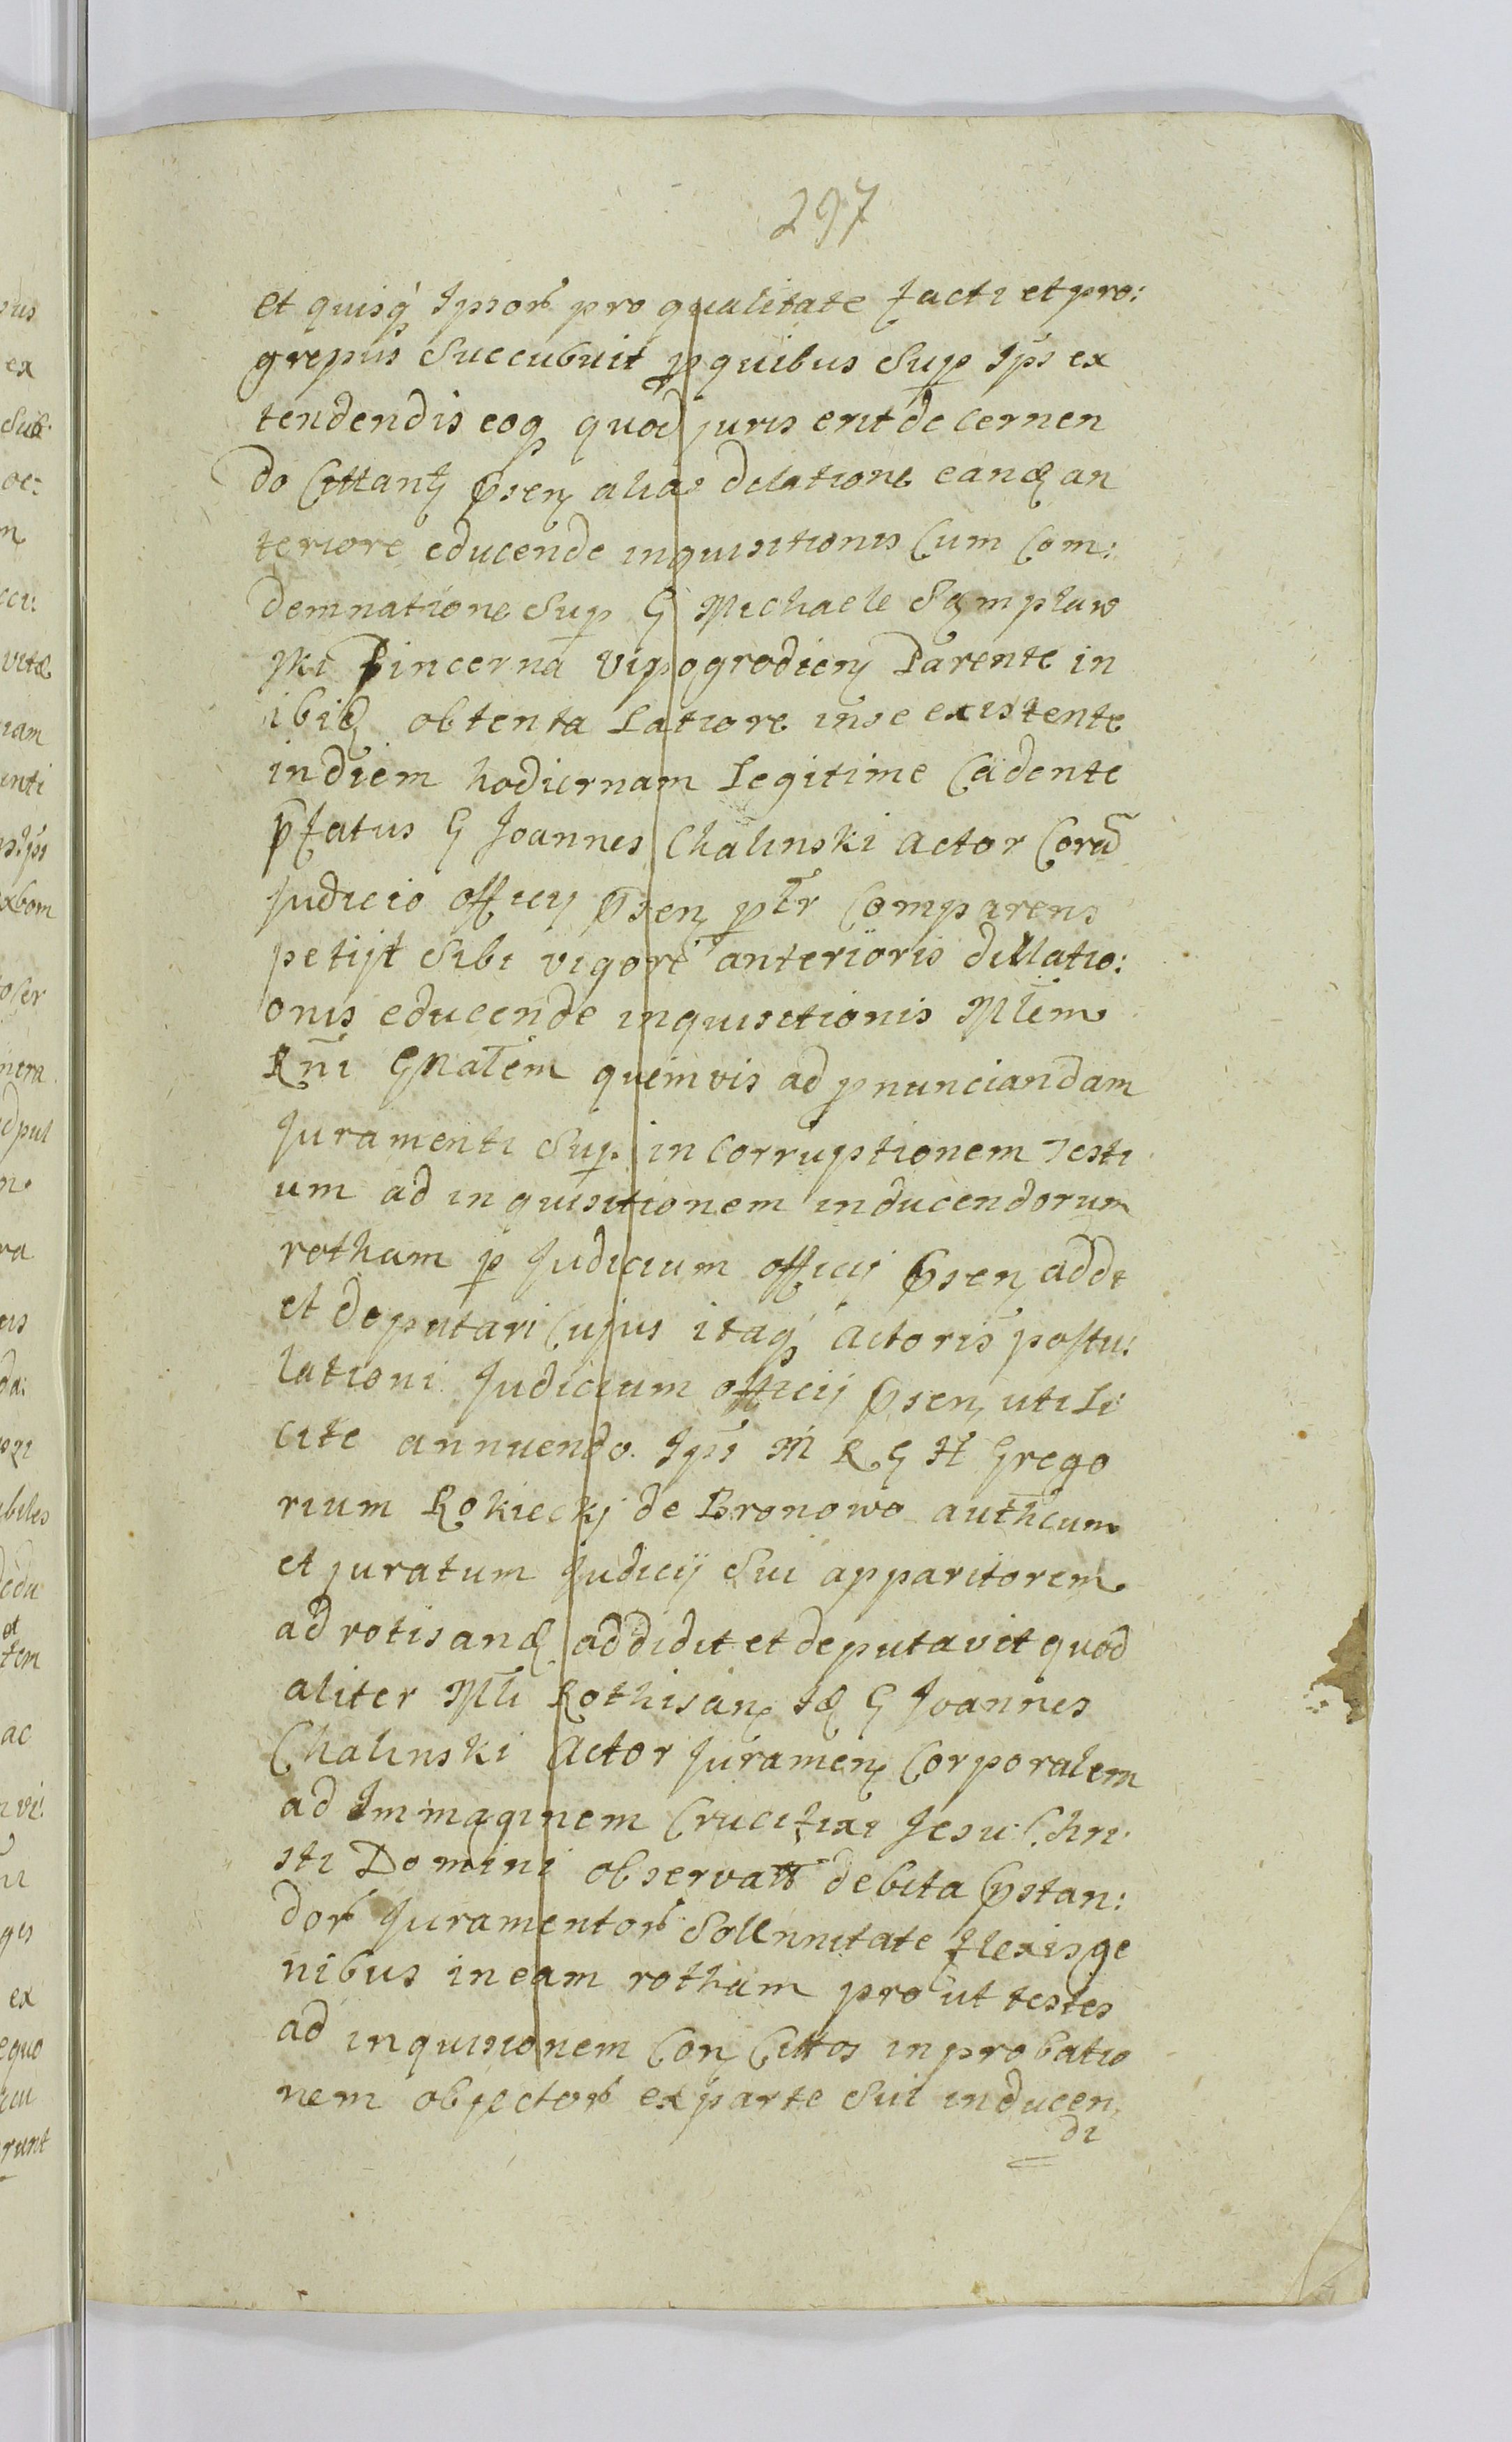 297
et quisq Ipsor pro qualitate facti et pro:
gressus Succubuit p quibus Sup Ips ex
tendendis eoq quod juris erit decernen
do Cittant psen alias dilatione eand an
teriore educende inquisitionis Cum Com:
demnatione Sup G Michaele Sąmpław
ski Pincerna Vissogrodien Parente in
ibid obtenta Latiore in se existente
in diem hodiernam Legitime Cadente
pfatus G Joannes Chalinski actor Corā
Judicio officij psen ptr Comparens
petijt Sibi vigore anterioris dillatio:
onis educende inquisitionis Mlem
Rni GNalem quemvis ad pnunciandam
Juramenti Sup. in Corruptionem Testi
um ad inquisitionem inducendorum
rotham p Judicium officij psen addi
et deputari Cujus itaq actoris postu:
lationi Judicium officij psen uti li
cite annuendo. Ips M R G H Grego
rium Rokieckj de Bronowo authcum
et juratum Judicij Sui apparitorem
ad rotisand addidit et deputavit quod
aliter Mli Rothisan Id G Joannes
Chalinski Actor Juramen Corporalem
ad Immaginem Crucifixi Jesu Chri
sti Domini observatt debita pstan:
dor Juramentor Sollnnitate flexis ge
nibus in eam rotham pro ut testes
ad inquisionem Con Cittos in probatio
nem objector ex parte Sui inducen
di